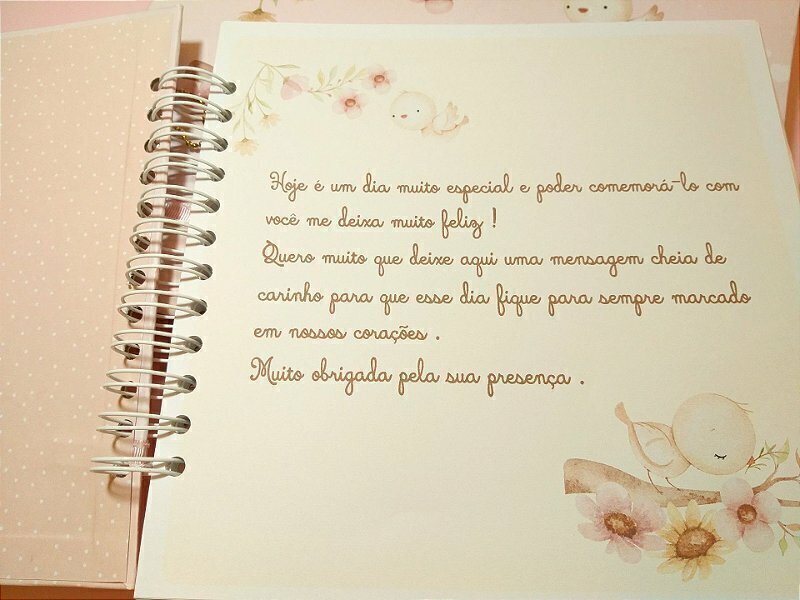 Hoje é um dia muito especial e poder comemorá-lo com
você me deixa muito feliz !
Quero muito que deixe aqui uma mensagem cheia de
carinho para que esse dia fique para sempre marcado
em nossos corações .
Muito obrigada pela sua presença .